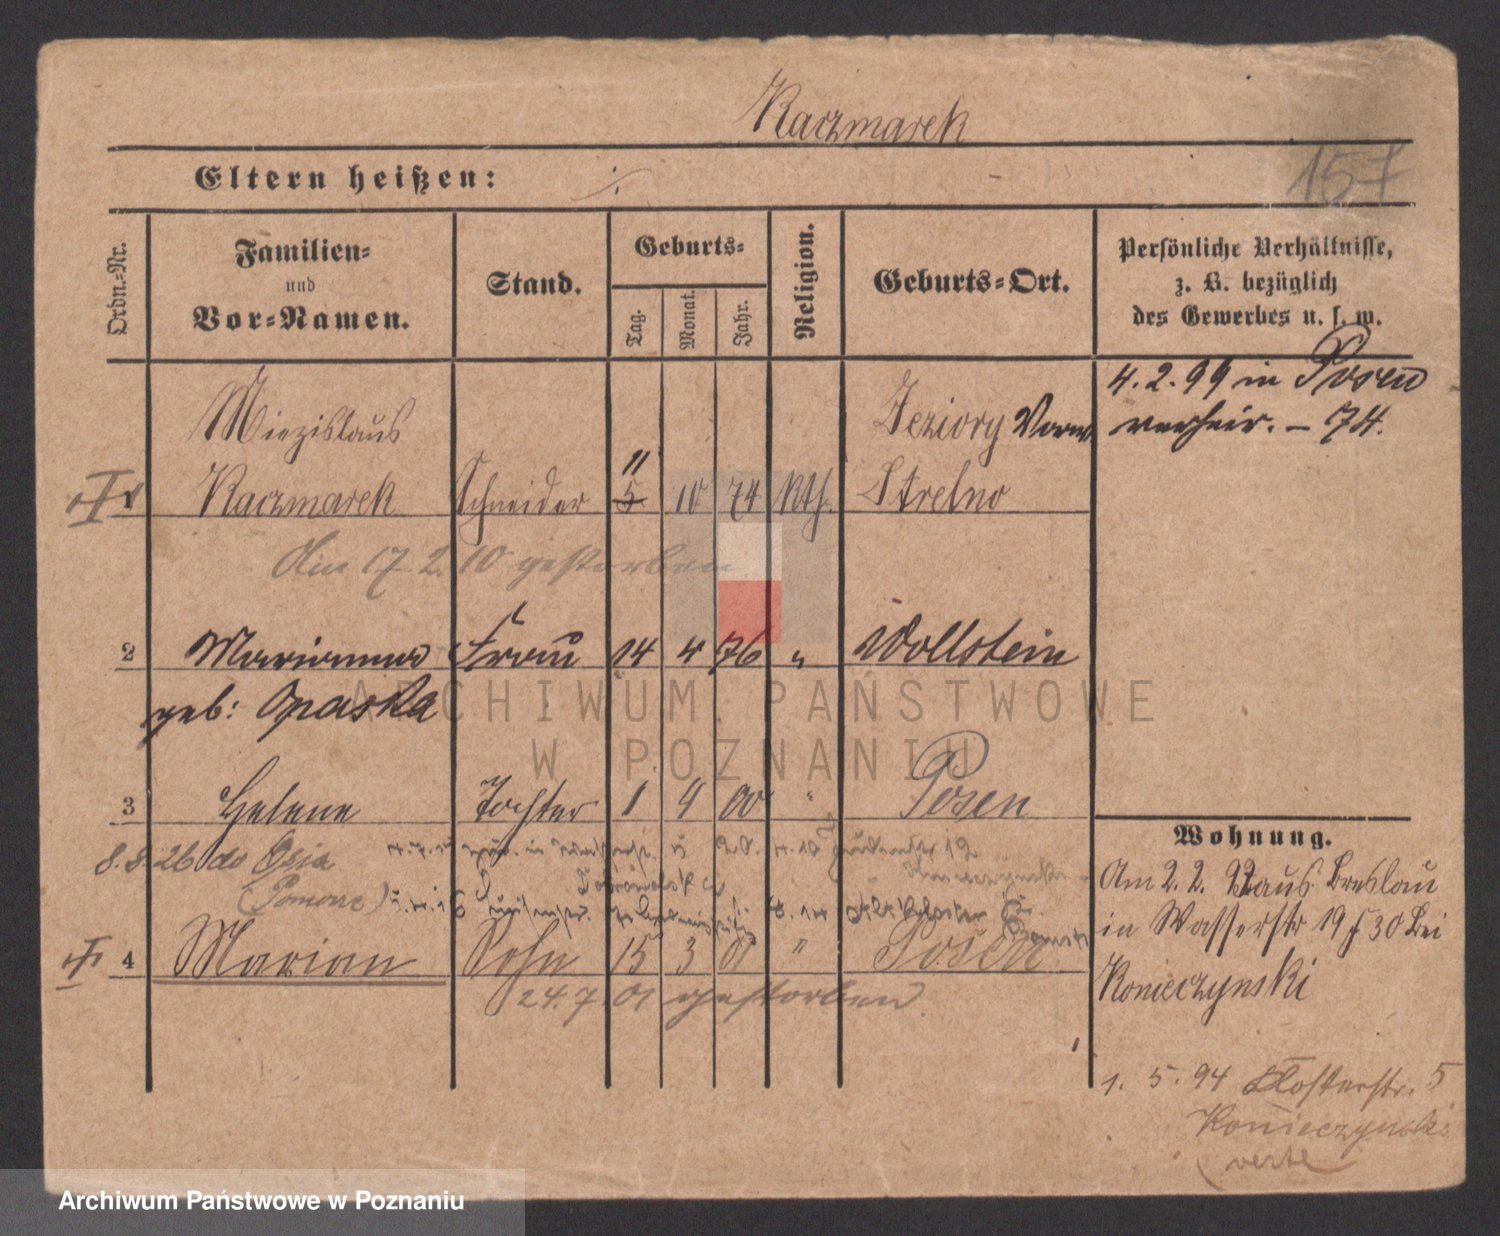 Kaczmarek
157
Eltern heißen: ./.
Ordn.-Nr.
Familien- und Vor-Namen.
Stand.
Geburts-
Tag.
Monat.
Jahr.
Religion.
Geburts-Ort.
Persönliche Verhältnisse,
z. B. bezüglich
des Gewerbes u. s. w.
4. 2. 99 in Posen
verheir. – 74.
Miezislaus Jeziory
11
Kaczmarek Schneider 5 10 74 Kth. Strelno
Am 17 2. 10 gestorben
2 Marianna Frau 14 4 76 " Wollstein
geb: Opaska
3 Helene Tochter 1 4 00 " Posen
8. 8. 26 do Osia
(Pomorze)
4 Marian Sohn 15 3 01 " Posen
24. 7. 01 gestorben.
Wohnung.
Am 2. 2. aus Breslau
in Wasserstr 19 30 bei
Konieczynski
1. 5. 94 Klosterstr. 5
Konieczynski
verte
ARCHIWUM PAŃSTWOWE
W POZNANIU
Archiwum Państwowe w Poznaniu